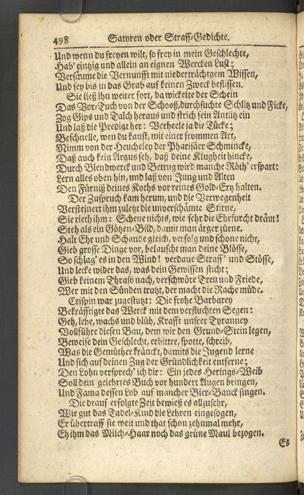 498 Satyren oder Straff-Gedichte.
Und wenn du freyen wilt, so frey in mein Geschlechte,
Hab' einzig und allein an eignen Wercken Lust;
Versäume die Vernunfft mit niederträchtgem Wissen,
Und sey bis in das Grab auf keinen Zweck beflissen.
Sie ließ ihn weiter fort, da wickelte der Schein
Das Vor-Tuch von der Schooß, durchsuchte Schlitz und Ficke,
Zog Gips und Talck heraus und strich sein Antlitz ein
Und laß die Predigt her: Verheele ja die Tücke;
Beschnelle, wen du kanst, mit einer frommen Art,
Nimm von der Heucheley der Pharisäer Schmincke,
Daß auch kein Argus seh, daß deine Klugheit hincke,
Durch Blendwerck und Betrug wird manche Röth' erspart:
Lern alles oben hin, und laß vor Jung und Alten
Den Fürniß deines Koths vor reines Gold-Ertz halten.
Der Zuspruch kam herum, und die Verwegenheit
Versteinert ihm zuletzt die unverschämte Stirne,
Sie rieth ihm: Scheue nichts, wie sehr die Ehrfurcht dräut!
Steh als ein Götzen-Bild, damit man ärger zürne.
Halt Ehr und Schande gleich, verfolg und schone nicht,
Gieb grosse Dinge vor, belausche man deine Blösse,
So schlag' es in den Wind! verdaue Straff' und Stösse,
Und lecke wider das, was dein Gewissen sticht;
Gieb keinem Thraso nach, verschwöre Treu und Friede,
Wer mit den Sünden trutzt, der macht die Rache müde.
Crispin war zugestutzt: Die frohe Barbarey
Bekräfftigte das Werck mit dem verfluchten Seegen:
Geh, lebe, wachs und blüh, Krafft unsrer Tyranney
Vollführe diesen Bau, dem wir den Grund-Stein legen,
Beweise dein Geschlecht, erbittre, spotte, schreib,
Was die Gemüther kränckt, damit die Jugend lerne
Und sich auf deinen Zug der Gründlichkeit entferne;
Den Lohn versprech' ich dir: Ein jedes Herings-Weib
Soll dein gelehrtes Buch vor hundert Augen bringen,
Und Fama dessen Lob auf mancher Bier-Banck singen.
Die drauf erfolgte Zeit bewieß es allzusehr,
Wie gut das Tadel-Kind die Lehren eingesogen,
Er übertraff sie weit und that schon zehnmal mehr,
Eh ihm das Milch-Haar noch das grüne Maul bezogen.
Es